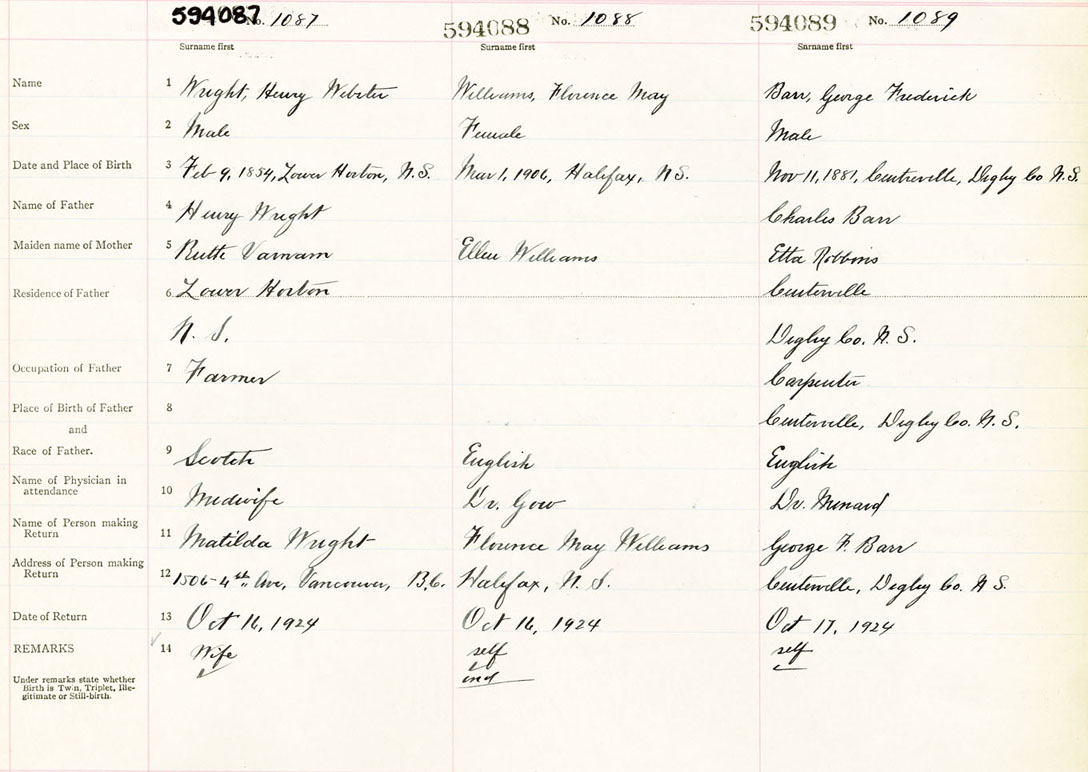 594087 No. 1087 594088 No. 1088 594089 No. 1089
Surname first Surname first Surname first
Name 1 Wright, Henry Webster Williams, Florence May Barr, George Frederick
Sex 2 Male Female Male
Date and Place of Birth 3 Feb 9, 1854, Lower Horton, N.S. Mar 1, 1906, Halifax, N.S. Nov 11, 1881, Centreville, Digby Co N.S.
Name of Father 4 Henry Wright Charles Barr
Maiden name of Mother 5 Ruth Varnam Ellen Williams Etta Robbins
Residence of Father 6 Lower Horton Centerville
N. S. Digby Co. N. S.
Occupation of Father 7 Farmer Carpenter
Place of Birth of Father 8 Centerville, Digby Co. N. S.
and
Race of Father. 9 Scotch English English
Name of Physician in
attendance 10 Midwife Dr. Gow Dr. Munard
Name of Person making
Return 11 Matilda Wright Florence May Williams George F. Barr
Address of Person making
Return 12 1506-4th Ave, Vancouver, B.C. Halifax, N. S. Centerville, Digby Co. N S.
Date of Return 13 Oct 16, 1924 Oct 16, 1924 Oct 17, 1924
REMARKS 14 Wife self self
Under remarks state whether
Birth is Twin, Triplet, Ille-
gitimate or Still-birth.